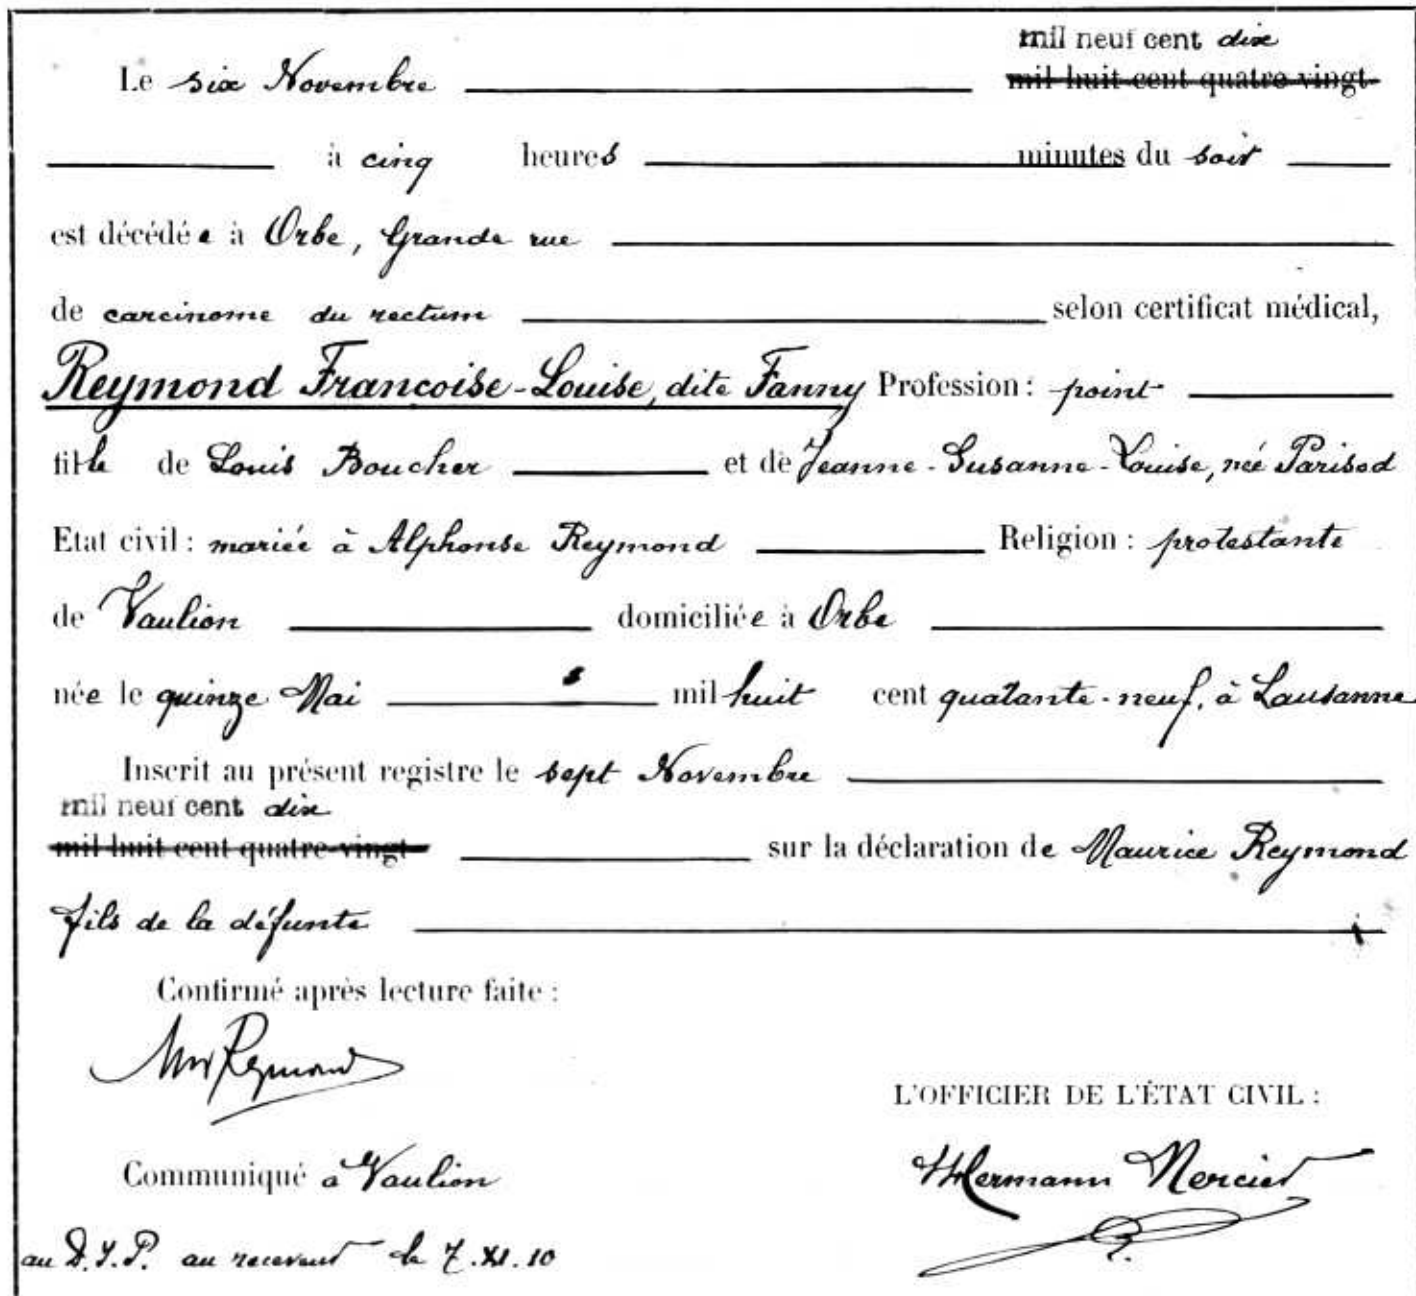 mil neuf cent dix
Le six Novembre mil huit cent quatre-vingt
à cinq heures minutes du soir
est décédée à Orbe, Grande rue
de carcinome du rectum selon certificat médical,
Reymond Francoise-Louise, dite Fanny Profession : point
fille de Louis Boucher et de Jeanne-Susanne-Louise, née Parisod
Etat civil : mariée à Alphonse Reymond Religion : protestante
de Vaulion domiciliée à Orbe
née le quinze Mai mil huit cent quatante-neuf, à Lausanne
Inscrit au présent registre le sept Novembre
mil neuf cent dix
mil huit cent quatre-vingt sur la déclaration de Maurice Reymond
fils de la défunte
Confirmé après lecture faite :
Mce Reymond
L'OFFICIER DE L'ÉTAT CIVIL :
Communiqué à Vaulion
Hermann Mercier
au D.J.P. au receveur le 7.XI.10